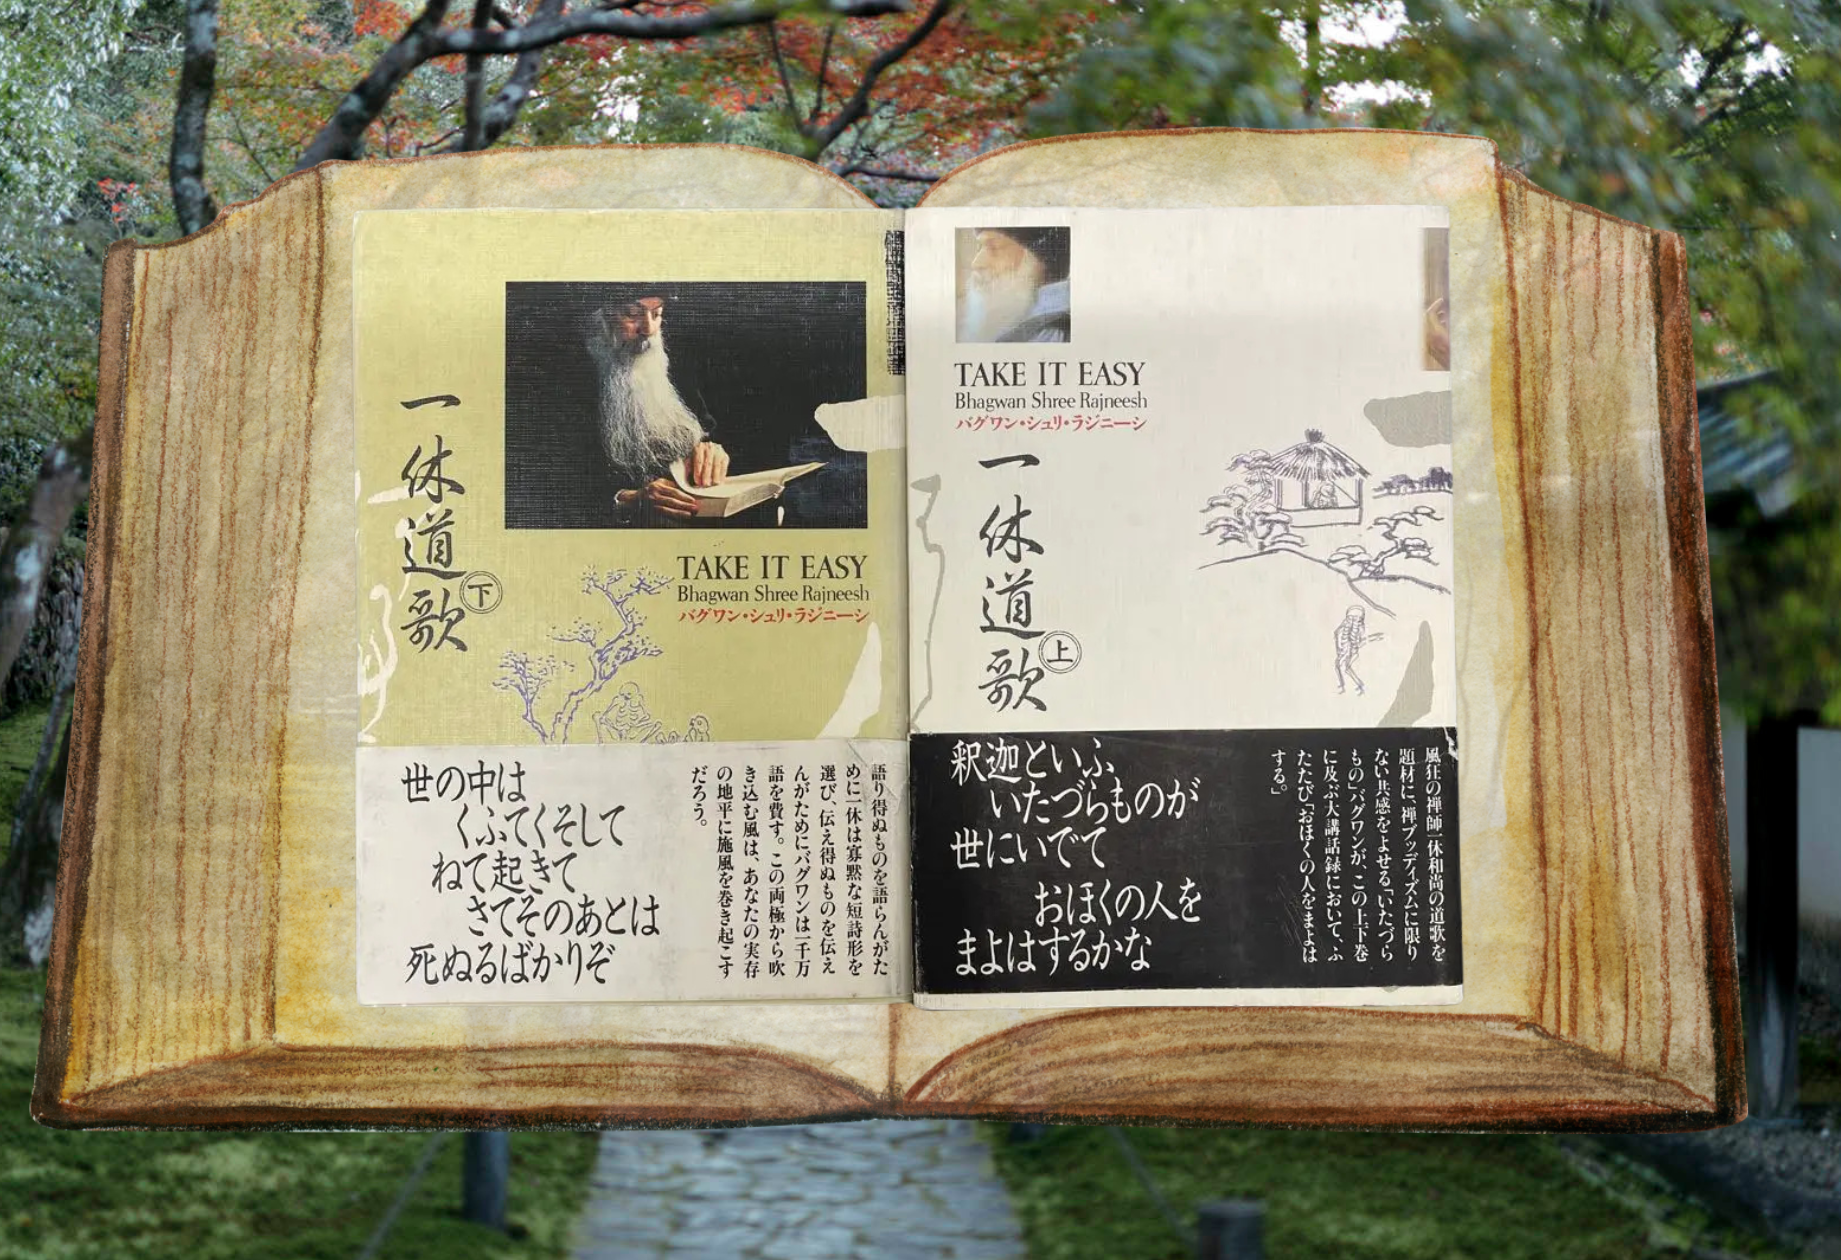 一休道歌
下
TAKE IT EASY
Bhagwan Shree Rajneesh
バグワン・シュリ・ラジニーシ
世の中は
くふてくそして
ねて起きて
さてそのあとは
死ぬるばかりぞ
語り得ぬものを語らんがた
めに一休は寡黙な短詩形を
選び、伝え得ぬものを伝え
んがためにバグワンは一千万
語を費す。この両極から吹
き込む風は、あなたの実存
の地平に施風を巻き起こす
だろう。
TAKE IT EASY
Bhagwan Shree Rajneesh
バグワン・シュリ・ラジニーシ
一休道歌
上
釈迦といふ
いたづらものが
世にいでて
おほくの人を
まよはするかな
風狂の禅師一休和尚の道歌を
題材に、禅ブッディズムに限り
ない共感をよせる「いたづら
もの」バグワンが、この上下巻
に及ぶ大講話録において、ふ
たたび「おほくの人をまよは
する。」